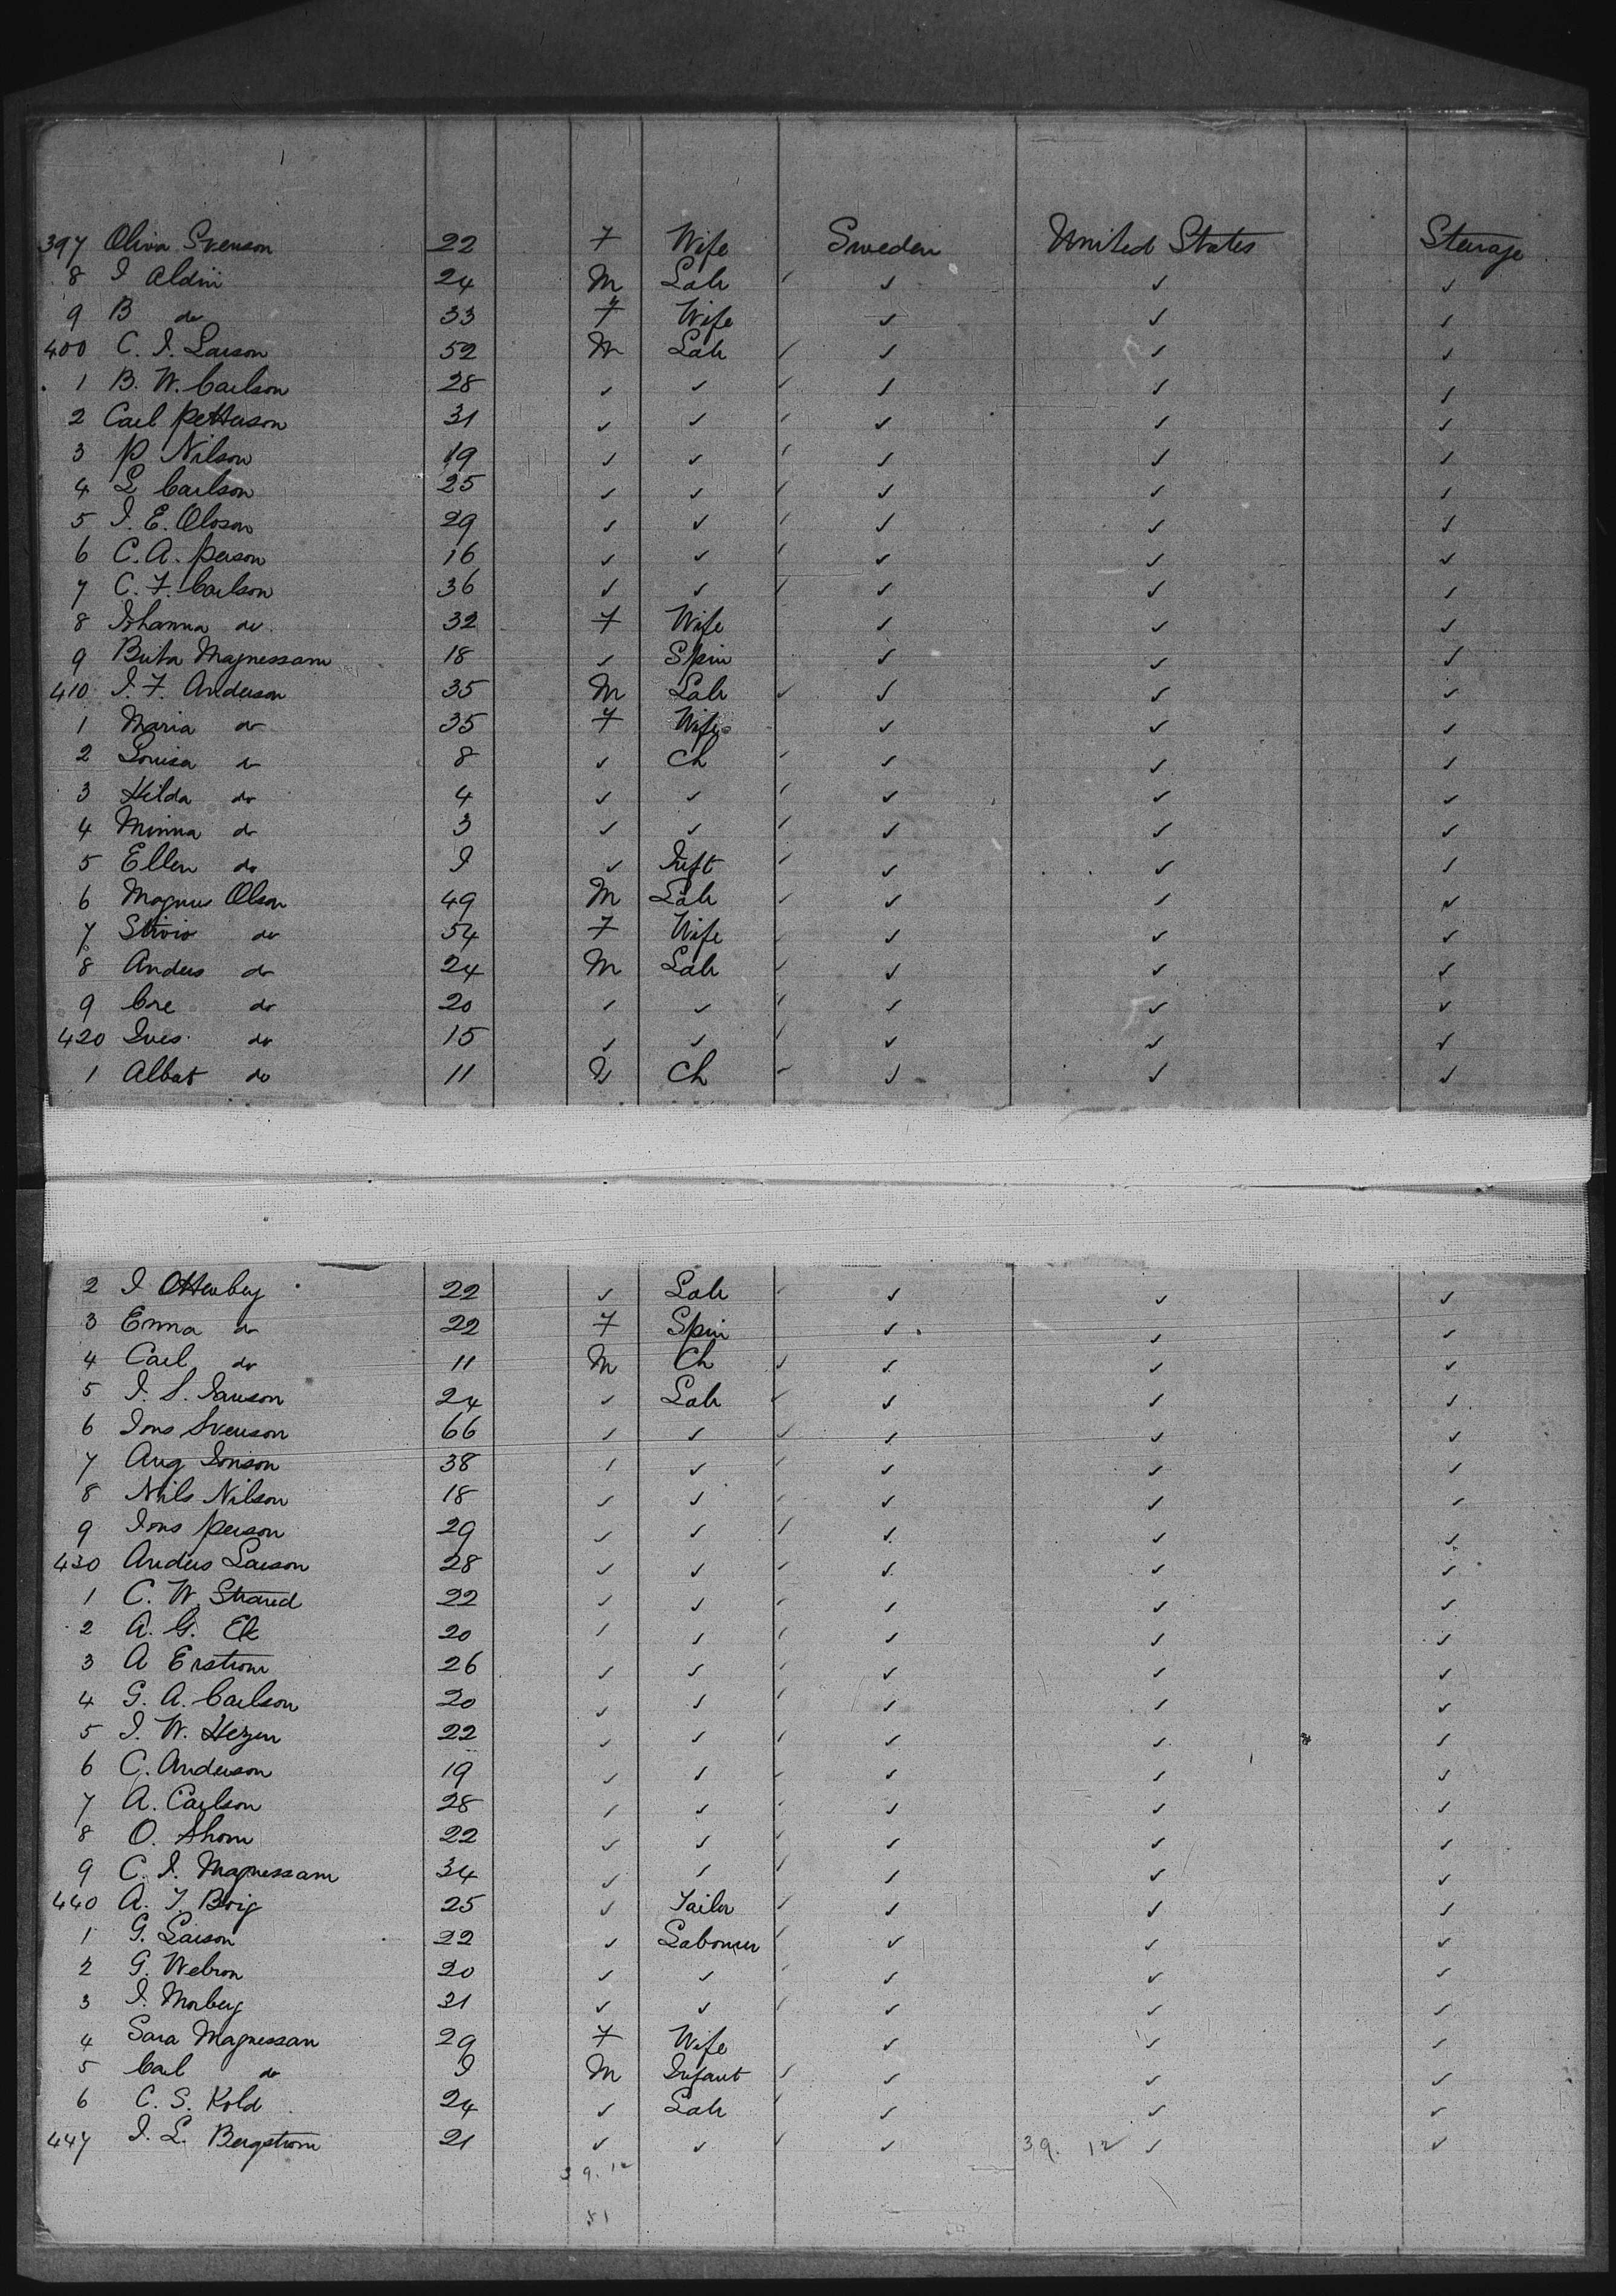 397 Oliva Svenson 22 F Wife Sweden United States Steerage
8 I Aldin 24 M Lab ✓ ✓ ✓ ✓
9 B do 33 F Wife ✓ ✓ ✓
400 C. I. Larson 52 M Lab ✓ ✓ ✓ ✓
1 B. W. Carlson 28 ✓ ✓ ✓ ✓ ✓ ✓
2 Carl Petterson 31 ✓ ✓ ✓ ✓ ✓ ✓
3 P Nilson 19 ✓ ✓ ✓ ✓ ✓ ✓
4 L Carlson 25 ✓ ✓ ✓ ✓ ✓ ✓
5 I. E. Oloson 29 ✓ ✓ ✓ ✓ ✓ ✓
6 C. A. Person 16 ✓ ✓ ✓ ✓ ✓ ✓
7 C. F. Carlson 36 ✓ ✓ ✓ ✓ ✓ ✓
8 Iohanna do 32 F Wife ✓ ✓ ✓
9 Magnessam 18 ✓ Spin ✓ ✓ ✓
410 I. F. Anderson 35 M Lab ✓ ✓ ✓ ✓
1 Maria do 35 F Wife ✓ ✓ ✓
2 Louisa do 8 ✓ Ch ✓ ✓ ✓ ✓
3 Hilda do 4 ✓ ✓ ✓ ✓ ✓ ✓
4 Minna do 3 ✓ ✓ ✓ ✓ ✓ ✓
5 Ellen do I ✓ Inft ✓ ✓ ✓ ✓
6 Magnus Olson 49 M Lab ✓ ✓ ✓ ✓
7 do 54 F Wife ✓ ✓ ✓
8 Anders do 24 M Lab ✓ ✓ ✓ ✓
9 do 20 ✓ ✓ ✓ ✓ ✓ ✓
420 Ives do 15 ✓ ✓ ✓ ✓ ✓ ✓
1 Albat do 11 Ch ✓ ✓ ✓ ✓
2 I Otterberg 22 ✓ Lab ✓ ✓ ✓ ✓
3 Emma do 22 F Spin ✓ ✓ ✓
4 Carl do 11 M Ch ✓ ✓ ✓ ✓
5 I. S. Ianson 24 ✓ Lab ✓ ✓ ✓ ✓
6 Ions Svenson 66 ✓ ✓ ✓ ✓ ✓ ✓
7 Aug Ionson 38 ✓ ✓ ✓ ✓ ✓ ✓
8 Nils Nilson 18 ✓ ✓ ✓ ✓ ✓ ✓
9 Ions Person 29 ✓ ✓ ✓ ✓ ✓ ✓
430 Anders Larson 28 ✓ ✓ ✓ ✓ ✓ ✓
1 C. W. Strand 22 ✓ ✓ ✓ ✓ ✓ ✓
2 A. G. Ek 20 ✓ ✓ ✓ ✓ ✓ ✓
3 A Erstrom 26 ✓ ✓ ✓ ✓ ✓ ✓
4 G. A. Carlson 20 ✓ ✓ ✓ ✓ ✓ ✓
5 I. W. Hezen 22 ✓ ✓ ✓ ✓ ✓ ✓
6 C. Anderson 19 ✓ ✓ ✓ ✓ ✓ ✓
7 A. Carlson 28 ✓ ✓ ✓ ✓ ✓ ✓
8 O. Ahom 22 ✓ ✓ ✓ ✓ ✓ ✓
9 C. I. Magnessam 34 ✓ ✓ ✓ ✓ ✓ ✓
440 A. 25 ✓ Tailor ✓ ✓ ✓ ✓
1 G. Larson 22 ✓ Labourer ✓ ✓ ✓ ✓
2 G. Webron 20 ✓ ✓ ✓ ✓ ✓ ✓
3 I. Morberg 21 ✓ ✓ ✓ ✓ ✓ ✓
4 Sara Magnessan 29 F Wife ✓ ✓ ✓
5 Carl do I M Infant ✓ ✓ ✓ ✓
6 C. S. Kold 24 ✓ Lab ✓ ✓ ✓ ✓
447 I. L. Bergstrom 21 ✓ ✓ ✓ ✓ 39. 12 ✓ ✓
39. 12
51